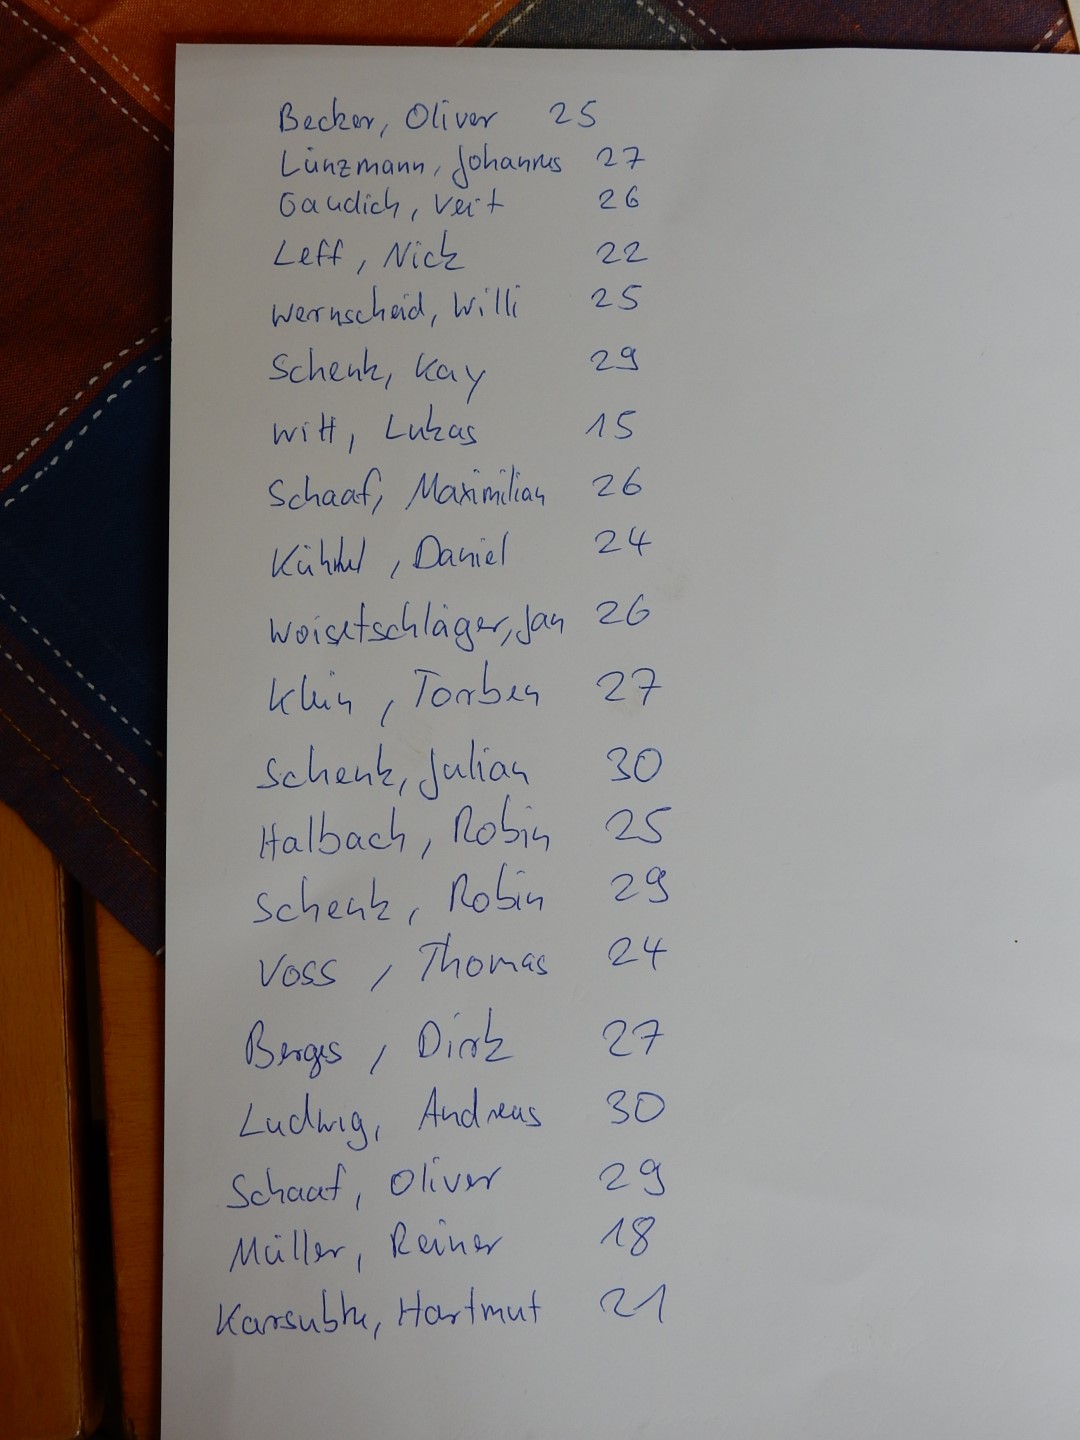 Becker, Oliver 25
Lünzmann, Johannes 27
Gaudich, Veit 26
Leff, Nick 22
Wernscheid, Willi 25
Schenk, Kay 29
Witt, Lukas 15
Schaaf, Maximilian 26
, Daniel 24
Woisetschläger, Jan 26
Klein, Torben 27
Schenk, Julian 30
Halbach, Robin 25
Schenk, Robin 29
Voss, Thomas 24
Berges, Dirk 27
Ludwig, Andreas 30
Schaaf, Oliver 29
Müller, Reiner 18
Hartmut 21